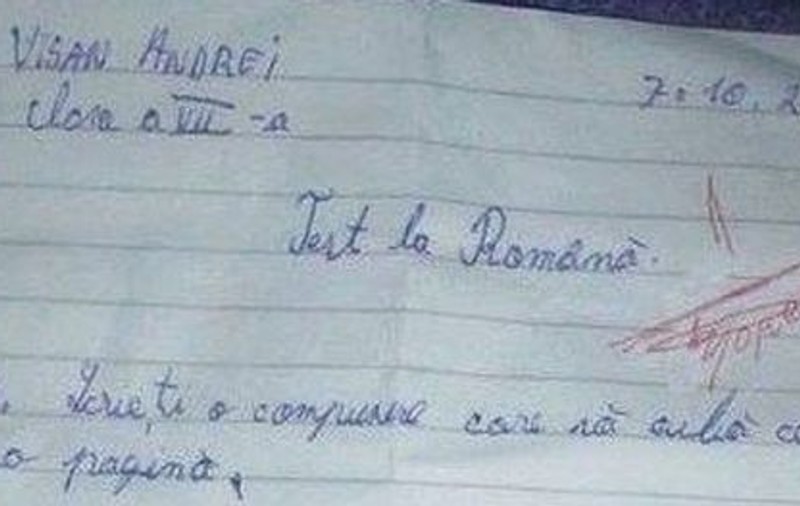 VISAN ANDREI
7.10.2
clasa a VII-a
Test la Română.
Scrieți o compunere care să aibă c
o pagină.